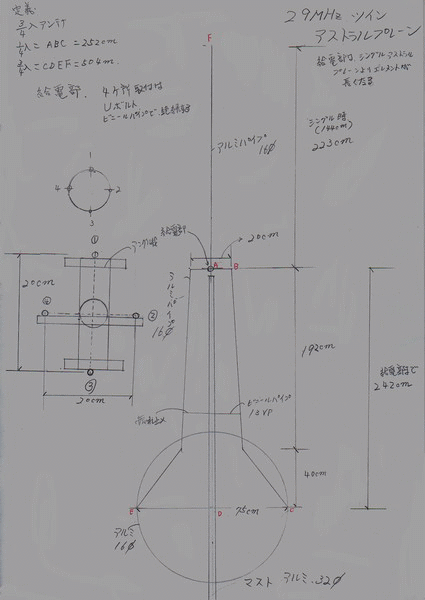 定義
3/4λアンテナ
1/4λ = ABC = 252cm
3/4λ = CDEF = 504m.
給電部. 4ヶ所取付は
Uボルト
ビニールパイプで絶縁
29MHz ツイン
アストラルプレーン
F
給電部は、シングルアストラル
プレーンよりエレメントが
長くなる
シングル時
(194cm)
223cm
アルミパイプ
16φ
1
4
2
3
給電部
アングル
20cm
A
B
①
20cm
④
②
③
20cm
アルミパイプ
16φ
192cm
給電部まで
242cm
ビニールパイプ
13VP
40cm
E
D
75cm
C
アルミ
16φ
マスト アルミ.32φ